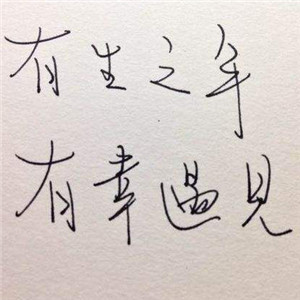 有生之年
有幸遇見